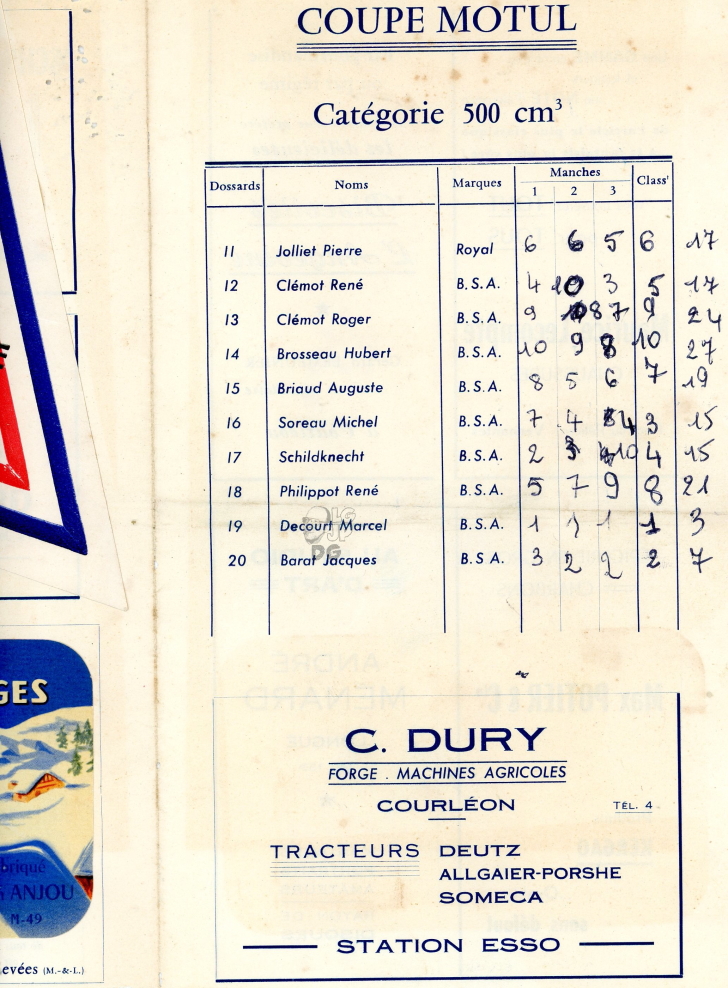 COUPE MOTUL
Catégorie 500 cm³
Dossards Noms Marques Manches Class¹
1 2 3
11 Jolliet Pierre Royal 6 6 5 6 17
12 Clémot René B.S.A. 4 10 3 5 17
13 Clémot Roger B.S.A. 9 8 7 9 24
14 Brosseau Hubert B.S.A. 10 9 8 10 27
15 Briaud Auguste B.S.A. 8 5 6 7 19
16 Soreau Michel B.S.A. 7 4 4 3 15
17 Schildknecht B.S.A. 2 3 10 4 15
18 Philippot René B.S.A. 5 7 9 8 21
19 Decourt Marcel B.S.A. 1 1 1 1 3
20 Barat Jacques B.S.A. 3 2 2 2 7
DG
C. DURY
FORGE . MACHINES AGRICOLES
COURLÉON TÉL. 4
TRACTEURS DEUTZ
ALLGAIER-PORSHE
SOMECA
STATION ESSO
GES
briqué
ANJOU
M-49
evées (M.-&-L.)